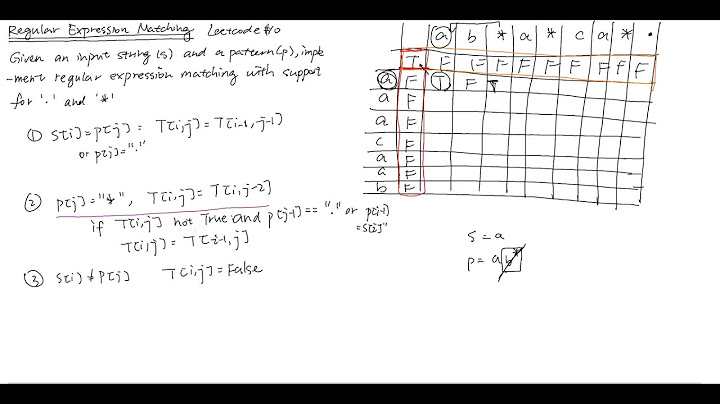 Regular Expression Matching Leetcode #10
Given an input string (s) and a pattern(p), imple
-ment regular expression matching with support
for '.' and '*'
① S[i]=p[j] = T[i,j]=T[i-1, j-1]
or p[j]="."
② p[j]="*", T[i,j]=T[i,j-2]
if T[i,j] not True and p[j-1]=="." or p[j-1]
=S[i]"
T[i,j]=T[i-1,j]
③ S(i)≠P[j] T[i,j]=False
a b * a * c a * .
T F F F F F F F F F
a F T F T
a F
a F
c F
a F
a F
b F
S = a
P = a b*